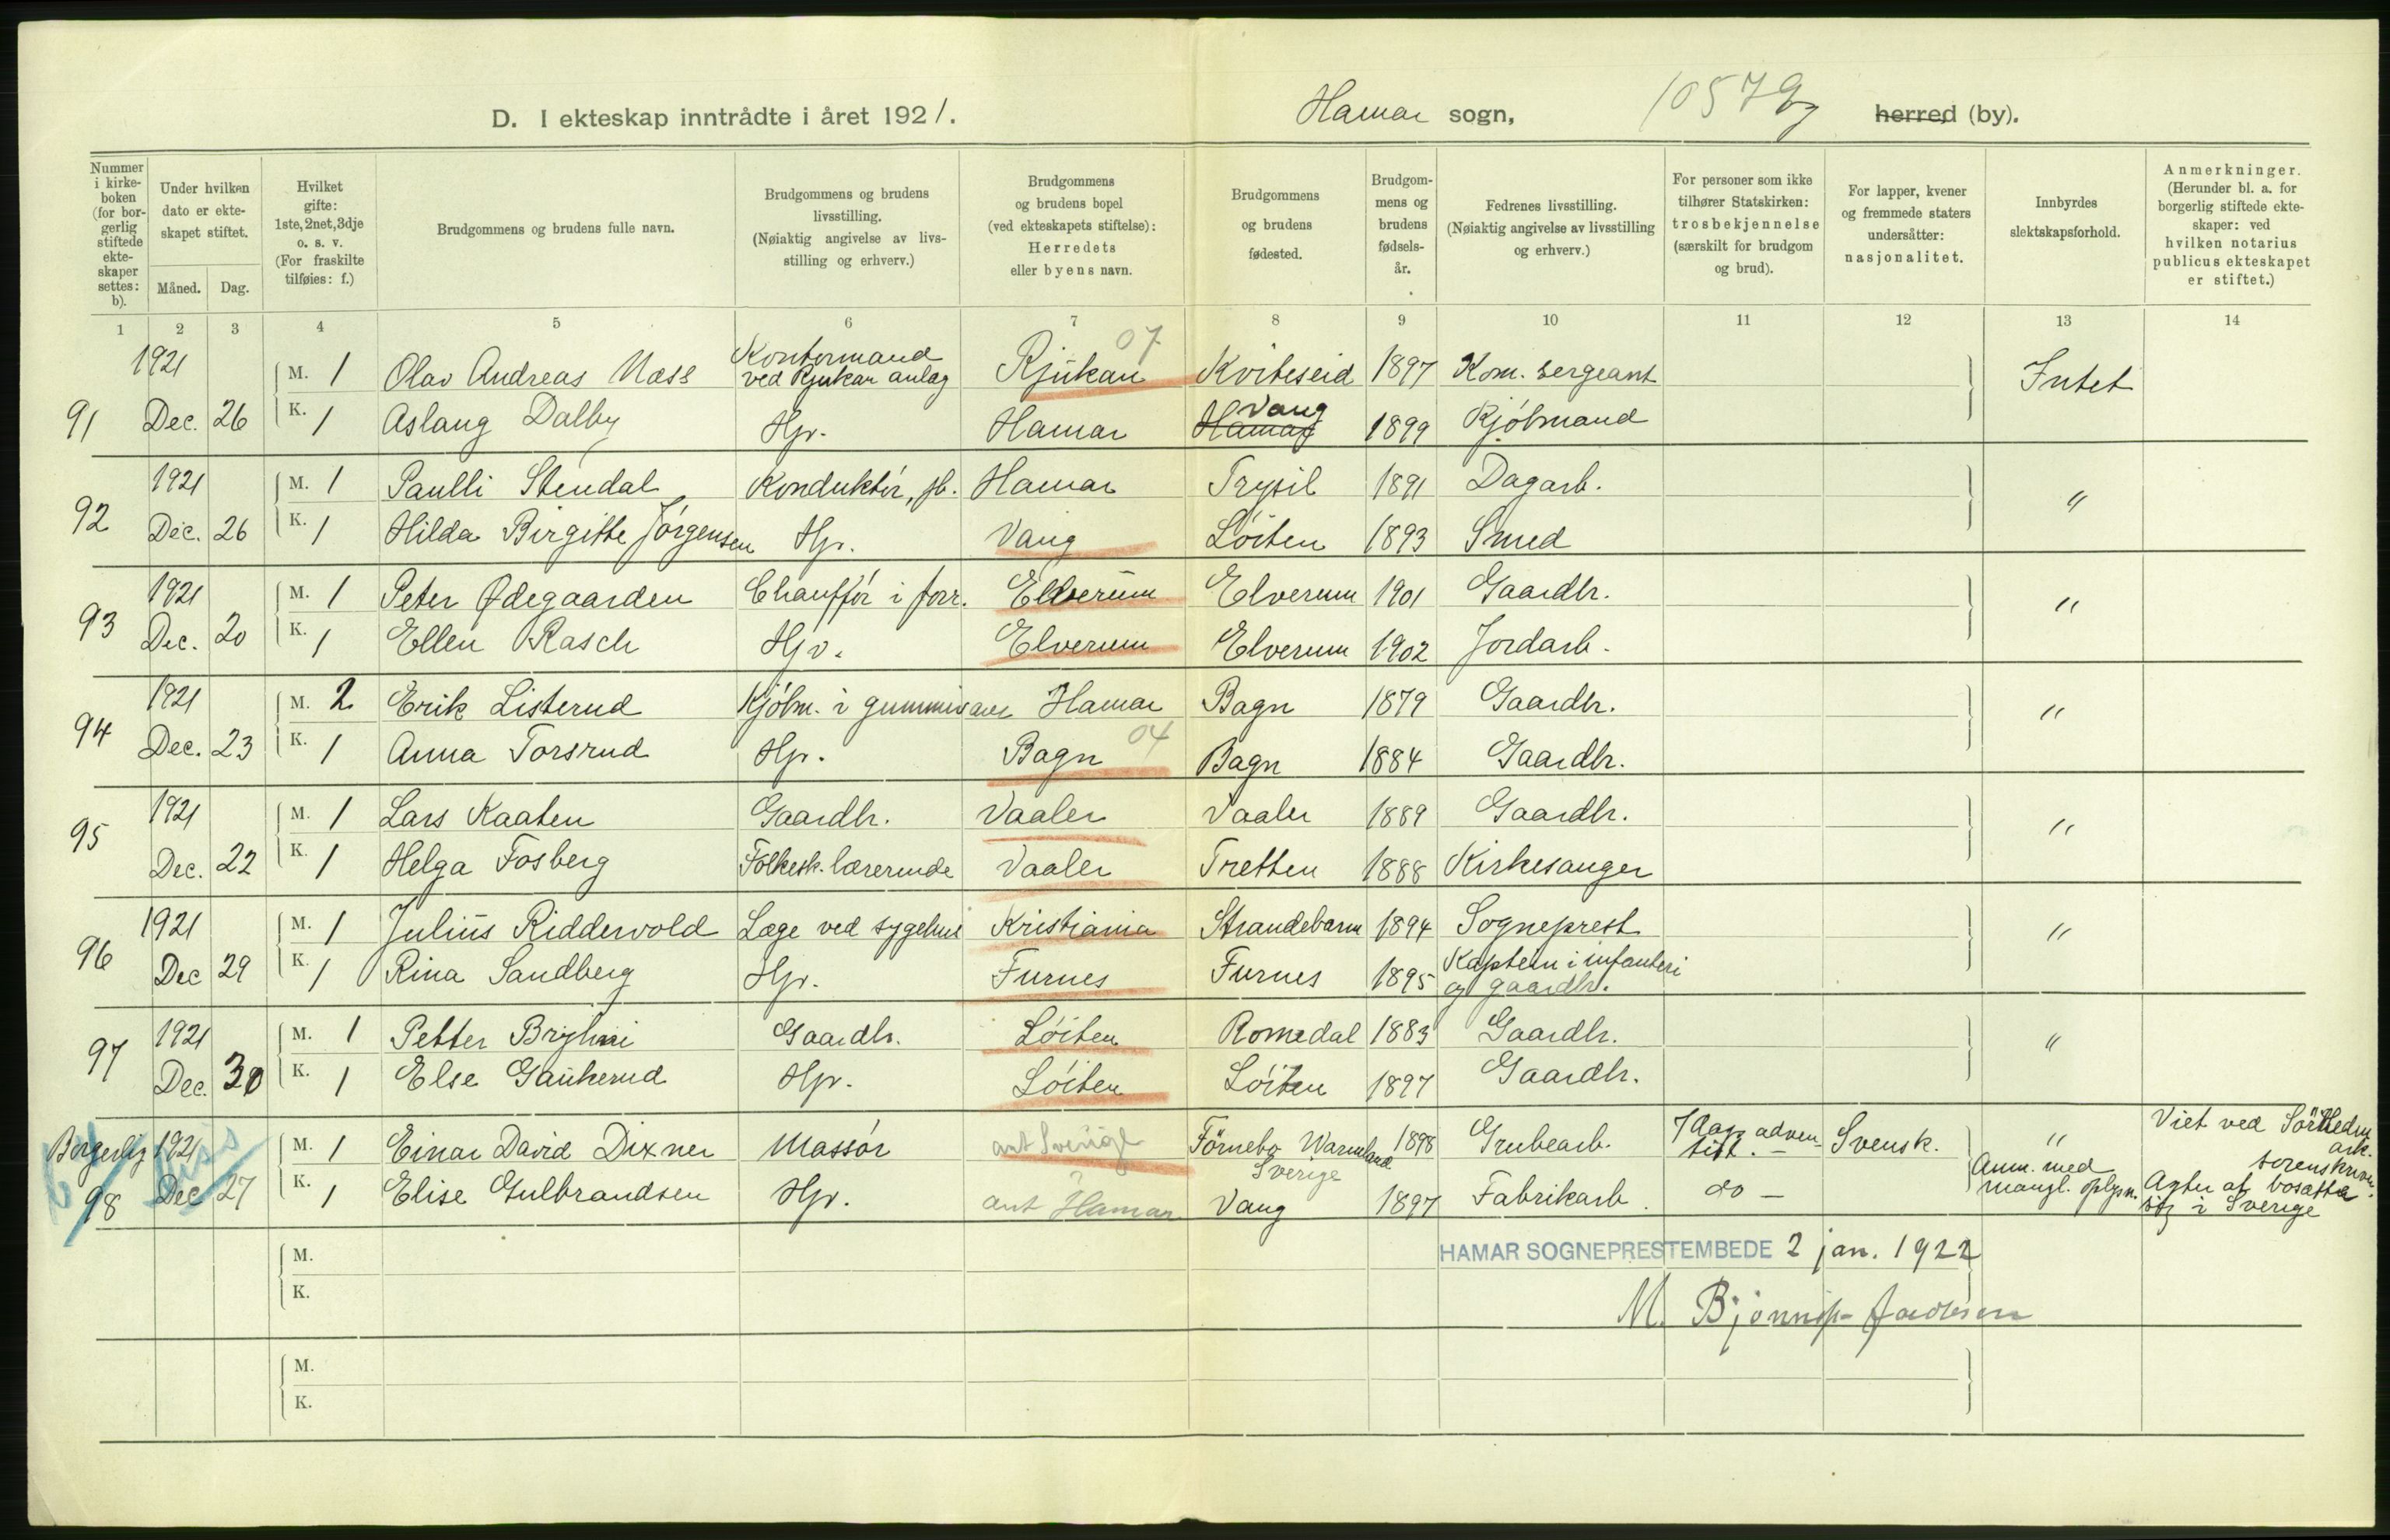 D. I ekteskap inntrådte i året 1921.
Hamar sogn,
herred (by).
Nummer i kirkeboken (for borgerlig stiftede ekteskaper settes: b).
Under hvilken dato er ekteskapet stiftet.
Måned. Dag.
Hvilket gifte: 1ste, 2net, 3dje o. s. v. (For fraskilte tilføies: f.)
Brudgommens og brudens fulle navn.
Brudgommens og brudens livsstilling. (Nøiaktig angivelse av livsstilling og erhverv.)
Brudgommens og brudens bopel (ved ekteskapets stiftelse): Herredets eller byens navn.
Brudgommens og brudens fødested.
Brudgommens og brudens fødselsår.
Fedrenes livsstilling. (Nøiaktig angivelse av livsstilling og erhverv.)
For personer som ikke tilhører Statskirken: trosbekjennelse (særskilt for brudgom og brud).
For lapper, kvener og fremmede staters undersåtter: nasjonalitet.
Innbyrdes slektskapsforhold.
Anmerkninger. (Herunder bl. a. for borgerlig stiftede ekteskaper: ved hvilken notarius publicus ekteskapet er stiftet.)
1 2 3 4 5 6 7 8 9 10 11 12 13 14
1921 M. 1 Olav Andreas Næss Kontormand ved Rjukan anlæg Rjukan 07 Kviteseid 1897 Kom. sergeant Intet
91 Dec. 26 K. 1 Aslaug Dalby Hp. Hamar Hamar Vang 1899 Kjöbmand
1921 M. 1 Paulli Stendal Konduktör, jb. Hamar Trysil 1891 Dagarb. "
92 Dec. 26 K. 1 Hilda Birgitte Jörgensen Hp. Vang Löiten 1893 Smed
1921 M. 1 Peter Ødegaarden Chaufför i forr. Elverum Elverum 1901 Gaardbr. "
93 Dec. 20 K. 1 Ellen Rasch Hjv. Elverum Elverum 1902 Jordarb.
1921 M. 2 Erik Listerud Kjöbm. i gummivarer Hamar Bagn 1879 Gaardbr. "
94 Dec. 23 K. 1 Anna Torsrud Hp. Bagn 04 Bagn 1884 Gaardbr.
1921 M. 1 Lars Kaaten Gaardbr. Vaaler Vaaler 1889 Gaardbr. "
95 Dec. 22 K. 1 Helga Fosberg Folkesk. lærerinde Vaaler Tretten 1888 Kirkesanger
1921 M. 1 Julius Riddervold Læge ved sygehus Kristiania Strandebarm 1894 Sogneprest "
96 Dec 29 K. 1 Rina Sandberg Hp. Furnes Furnes 1895 Kaptein i infanteri og gaardbr.
1921 M. 1 Petter Bryhni Gaardbr. Löiten Romedal 1883 Gaardbr. "
97 Dec. 30 K. 1 Else Gaukerud Hp. Löiten Löiten 1897 Gaardbr.
Borgerlig 1921 M. 1 Einar David Dixner Massör ant Sverige Förnebo Warmland Sverige 1898 Grubearb. 7 dags adventist. Svensk. " Viet ved Sör Hedmark. sorenskriver.
98 Dec 27 K. 1 Elise Gulbrandsen Hp. ant Hamar Vang 1897 Fabrikarb. do — Anm. med mangl. oplysn. Agter at bosætte sig i Sverige
M.
K.
HAMAR SOGNEPRESTEMBEDE 2 jan. 1922
M.
M.
K.